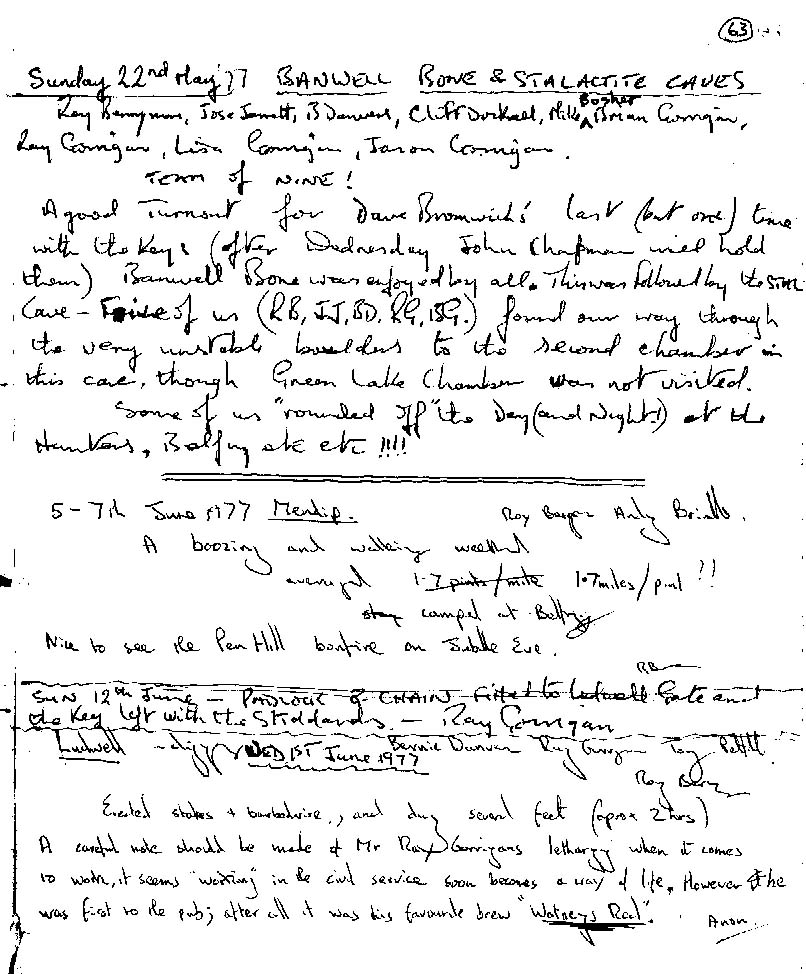 63
Sunday 22nd May 77 BANWELL BONE & STALACTITE CAVES
Bosher
Ray Berryman, Jose Jarrett, B Danvers, Cliff Dockrell, Mike Brian Gorrigan,
Ray Gorrigan, Lisa Gorrigan, Jason Gorrigan.
TEAM of NINE!
A good Turnout for Dave Bromwich's last (but one) time
with the Keys (after Wednesday John Chapman will hold
them) Banwell Bone was enjoyed by all. This was followed by the STAL
Cave - Five of us (RB, JJ, BD, RG, BG.) found our way through
the very unstable boulders to the second chamber in
this cave, though Green Lake Chamber was not visited.
Some of us "rounded off" the Day (and Night!) at the
Hunters, Belfry etc etc !!!!
5-7th June 1977 Mendip. Roy Andy
A boozing and walking weekend
averaged 1.7 pints/mile 1.7 miles/pint !!
stay camped at Belfry
Nice to see the Pen Hill bonfire on Jubilee Eve.
RB
SUN 12th June - PADLOCK & CHAIN fitted to Ludwell Gate and
the Key left with the Stoddards - Ray Gorrigan
Ludwell - digging WED 1ST June 1977 Bernie Ray Gorrigan Tony
Roy
Erected stakes + barbedwire, and dug several feet (aprox 2 hrs)
A careful note should be made of Mr Ray Gorrigans lethargy when it comes
to work, it seems "working" in the civil service soon becomes a way of life. However he
was first to the pub; after all it was his favourite brew "Watneys Red".
Anon.